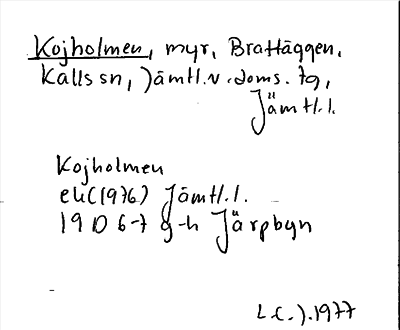 Kojholmen, myr, Brattäggen,
Kalls sn, Jämtl.v.doms.tg,
Jämtl.l.
Kojholmen
ek(1976) Jämtl.l.
19D 6-7 g-h Järpbyn
L.C.J.1977